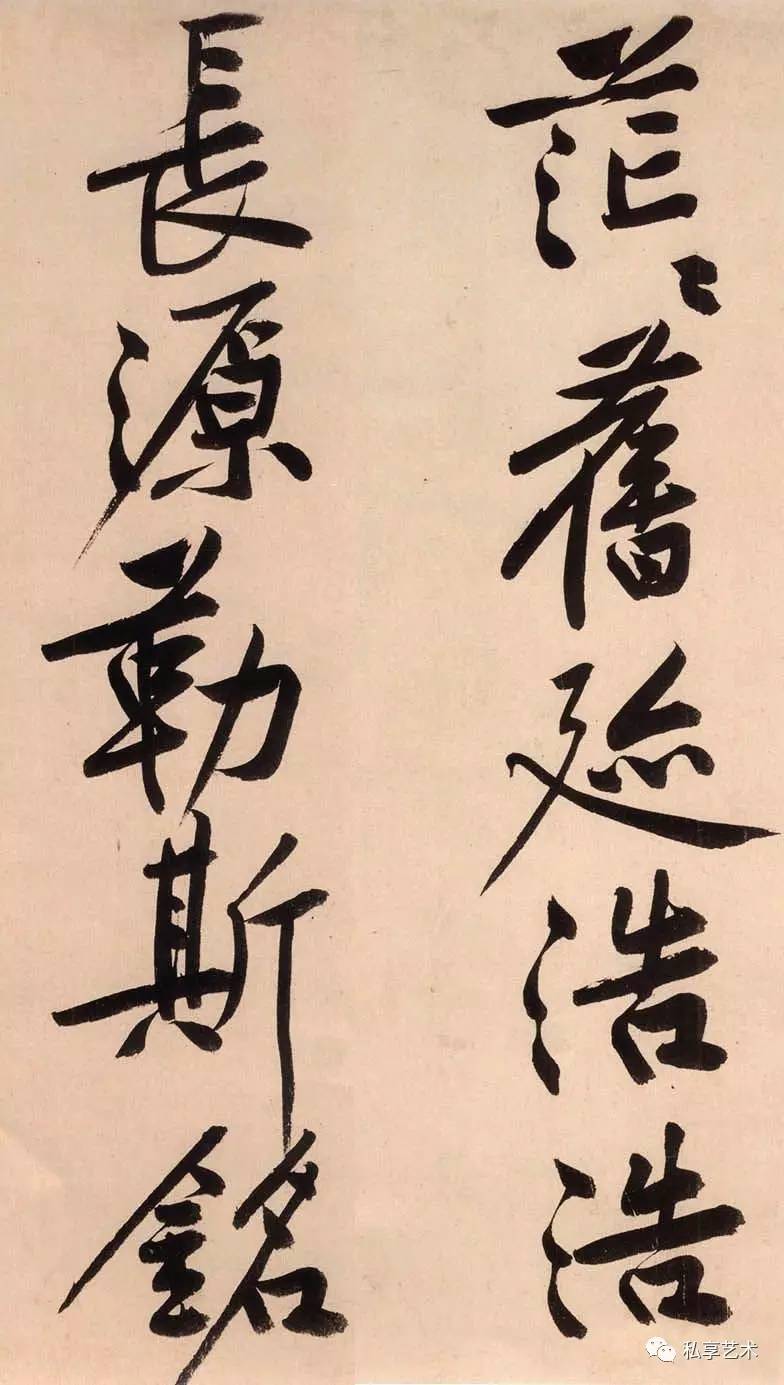 茫〻舊迹浩浩
長源勒斯銘
私享艺术